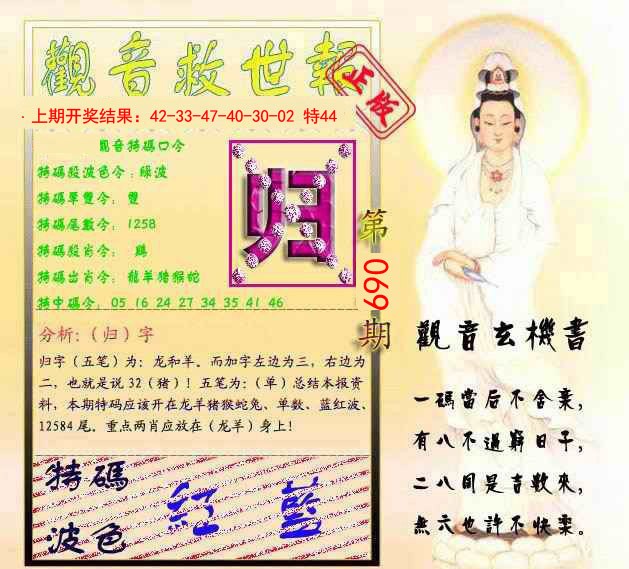 觀音救世報
正版
上期开奖结果：42-33-47-40-30-02 特44
觀音特碼口令
特碼殺波色令：綠波
特碼單雙令： 雙
特碼尾數令： 1258
特碼殺肖令： 鷄
特碼出肖令：龍羊猪猴蛇
特中碼令：05 16 24 27 34 35 41 46
归
第
069
期
分析：（归）字
归字（五笔）为：龙和羊。而加字左边为三，右边为
二，也就是说32（猪）！五笔为：（单）总结本报资
料，本期特码应该开在龙羊猪猴蛇兔、单数、蓝红波、
12584尾。重点两肖应放在（龙羊）身上！
特碼
波色
紅 藍
觀音玄機書
一碼當后不舍棄，
有八不過窮日子，
二八同是吉數來，
無六也許不快樂。